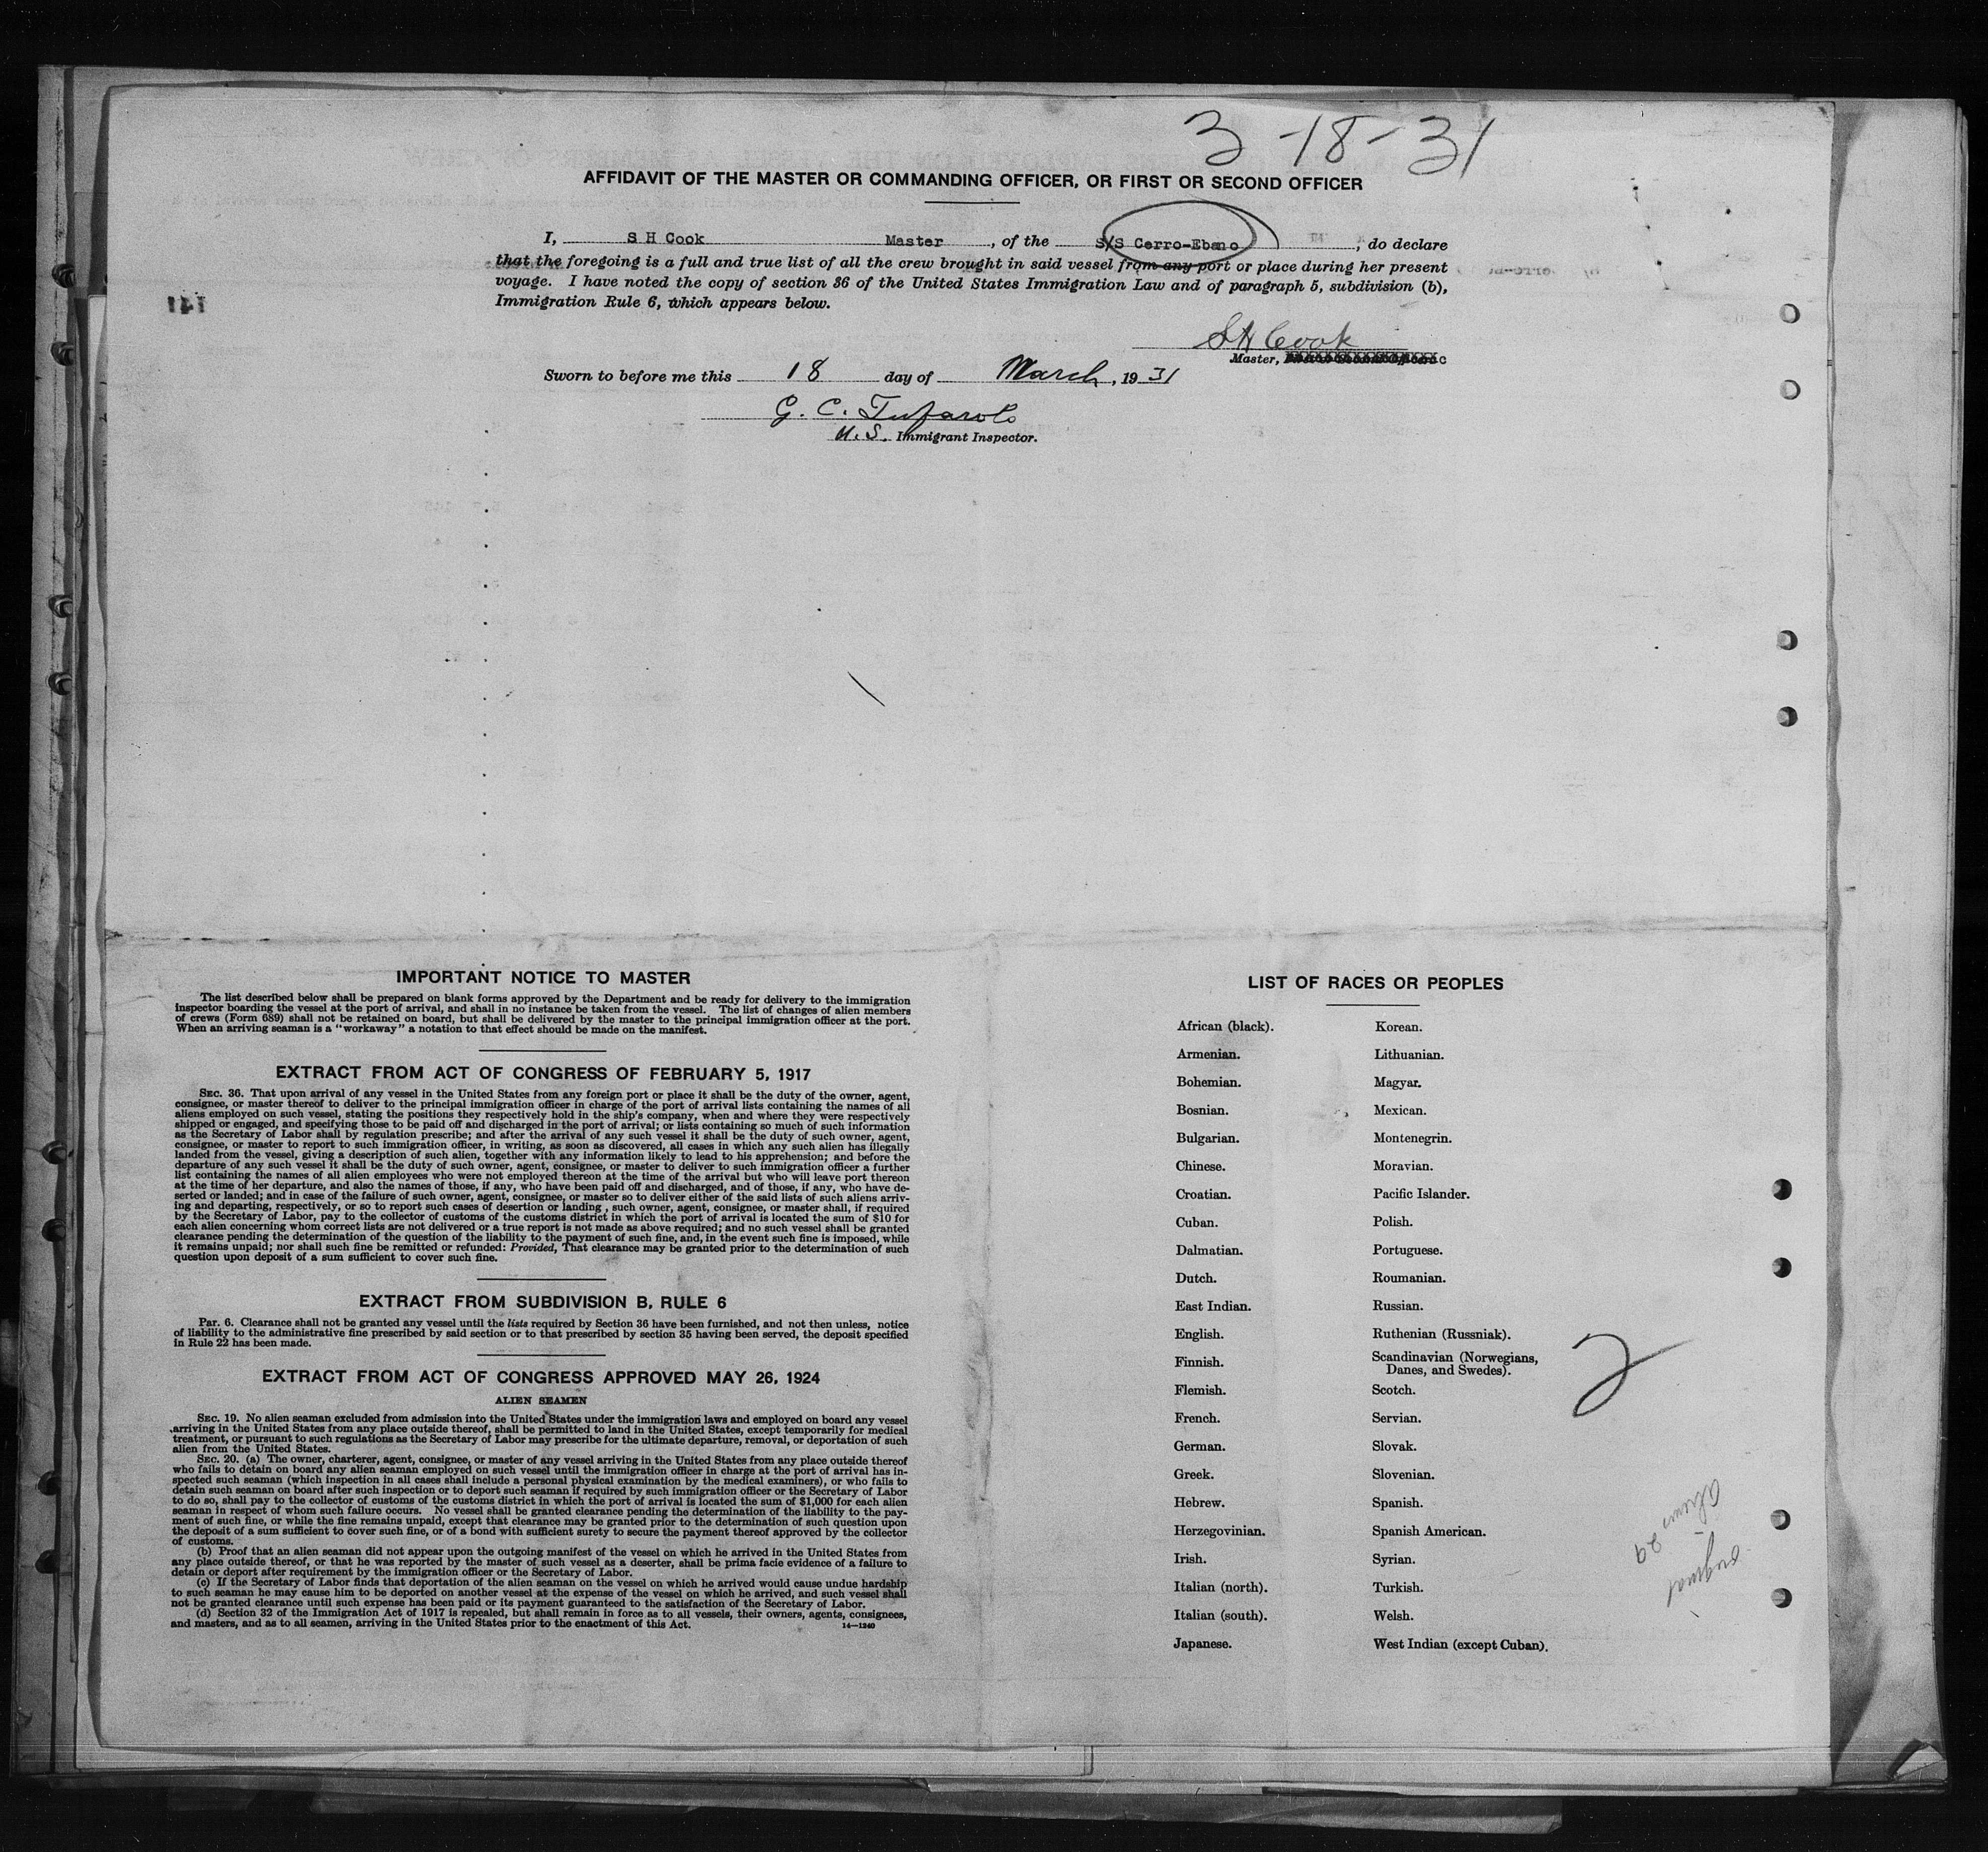 3-18-31
AFFIDAVIT OF THE MASTER OR COMMANDING OFFICER, OR FIRST OR SECOND OFFICER
I, S H Cook Master, of the S/S Cerro-Ebano, do declare
that the foregoing is a full and true list of all the crew brought in said vessel from any port or place during her present
voyage. I have noted the copy of section 36 of the United States Immigration Law and of paragraph 5, subdivision (b),
Immigration Rule 6, which appears below.
141
S H Cook
Master,
Sworn to before me this 18 day of March, 1931
G. C.
U. S. Immigrant Inspector.
IMPORTANT NOTICE TO MASTER
The list described below shall be prepared on blank forms approved by the Department and be ready for delivery to the immigration
inspector boarding the vessel at the port of arrival, and shall in no instance be taken from the vessel. The list of changes of alien members
of crews (Form 689) shall not be retained on board, but shall be delivered by the master to the principal immigration officer at the port.
When an arriving seaman is a "workaway" a notation to that effect should be made on the manifest.
EXTRACT FROM ACT OF CONGRESS OF FEBRUARY 5, 1917
SEC. 36. That upon arrival of any vessel in the United States from any foreign port or place it shall be the duty of the owner, agent,
consignee, or master thereof to deliver to the principal immigration officer in charge of the port of arrival lists containing the names of all
aliens employed on such vessel, stating the positions they respectively hold in the ship's company, when and where they were respectively
shipped or engaged, and specifying those to be paid off and discharged in the port of arrival; or lists containing so much of such information
as the Secretary of Labor shall by regulation prescribe; and after the arrival of any such vessel it shall be the duty of such owner, agent,
consignee, or master to report to such immigration officer, in writing, as soon as discovered, all cases in which any such alien has illegally
landed from the vessel, giving a description of such alien, together with any information likely to lead to his apprehension; and before the
departure of any such vessel it shall be the duty of such owner, agent, consignee, or master to deliver to such immigration officer a further
list containing the names of all alien employees who were not employed thereon at the time of the arrival but who will leave port thereon
at the time of her departure, and also the names of those, if any, who have been paid off and discharged, and of those, if any, who have de-
serted or landed; and in case of the failure of such owner, agent, consignee, or master so to deliver either of the said lists of such aliens arriv-
ing and departing, respectively, or so to report such cases of desertion or landing, such owner, agent, consignee, or master shall, if required
by the Secretary of Labor, pay to the collector of customs of the customs district in which the port of arrival is located the sum of $10 for
each alien concerning whom correct lists are not delivered or a true report is not made as above required; and no such vessel shall be granted
clearance pending the determination of the question of the liability to the payment of such fine, and, in the event such fine is imposed, while
it remains unpaid; nor shall such fine be remitted or refunded: Provided, That clearance may be granted prior to the determination of such
question upon deposit of a sum sufficient to cover such fine.
EXTRACT FROM SUBDIVISION B, RULE 6
Par. 6. Clearance shall not be granted any vessel until the lists required by Section 36 have been furnished, and not then unless, notice
of liability to the administrative fine prescribed by said section or to that prescribed by section 35 having been served, the deposit specified
in Rule 22 has been made.
EXTRACT FROM ACT OF CONGRESS APPROVED MAY 26, 1924
ALIEN SEAMEN
SEC. 19. No alien seaman excluded from admission into the United States under the immigration laws and employed on board any vessel
arriving in the United States from any place outside thereof, shall be permitted to land in the United States, except temporarily for medical
treatment, or pursuant to such regulations as the Secretary of Labor may prescribe for the ultimate departure, removal, or deportation of such
alien from the United States.
SEC. 20. (a) The owner, charterer, agent, consignee, or master of any vessel arriving in the United States from any place outside thereof
who fails to detain on board any alien seaman employed on such vessel until the immigration officer in charge at the port of arrival has in-
spected such seaman (which inspection in all cases shall include a personal physical examination by the medical examiners), or who fails to
detain such seaman on board after such inspection or to deport such seaman if required by such immigration officer or the Secretary of Labor
to do so, shall pay to the collector of customs of the customs district in which the port of arrival is located the sum of $1,000 for each alien
seaman in respect of whom such failure occurs. No vessel shall be granted clearance pending the determination of the liability to the pay-
ment of such fine, or while the fine remains unpaid, except that clearance may be granted prior to the determination of such question upon
the deposit of a sum sufficient to cover such fine, or of a bond with sufficient surety to secure the payment thereof approved by the collector
of customs.
(b) Proof that an alien seaman did not appear upon the outgoing manifest of the vessel on which he arrived in the United States from
any place outside thereof, or that he was reported by the master of such vessel as a deserter, shall be prima facie evidence of a failure to
detain or deport after requirement by the immigration officer or the Secretary of Labor.
(c) If the Secretary of Labor finds that deportation of the alien seaman on the vessel on which he arrived would cause undue hardship
to such seaman he may cause him to be deported on another vessel at the expense of the vessel on which he arrived, and such vessel shall
not be granted clearance until such expense has been paid or its payment guaranteed to the satisfaction of the Secretary of Labor.
(d) Section 32 of the Immigration Act of 1917 is repealed, but shall remain in force as to all vessels, their owners, agents, consignees,
and masters, and as to all seamen, arriving in the United States prior to the enactment of this Act.
14—1240
LIST OF RACES OR PEOPLES
African (black). Korean.
Armenian. Lithuanian.
Bohemian. Magyar.
Bosnian. Mexican.
Bulgarian. Montenegrin.
Chinese. Moravian.
Croatian. Pacific Islander.
Cuban. Polish.
Dalmatian. Portuguese.
Dutch. Roumanian.
East Indian. Russian.
English. Ruthenian (Russniak).
Finnish. Scandinavian (Norwegians,
Danes, and Swedes).
Flemish. Scotch.
French. Servian.
German. Slovak.
Greek. Slovenian.
Hebrew. Spanish.
Herzegovinian. Spanish American.
Irish. Syrian.
Italian (north). Turkish.
Italian (south). Welsh.
Japanese. West Indian (except Cuban).
2
original